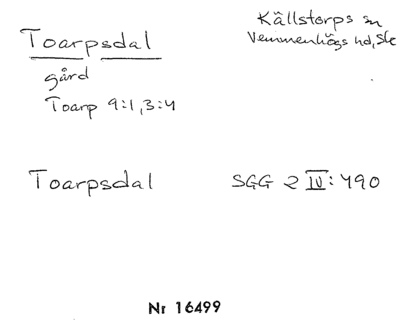 Toarpsdal
Källstorps sn
Vemmenhögs hd, Sk
gård
Toarp 9:1, 3:4
Toarpsdal
SGG 2 IV: 490
Nr 16499